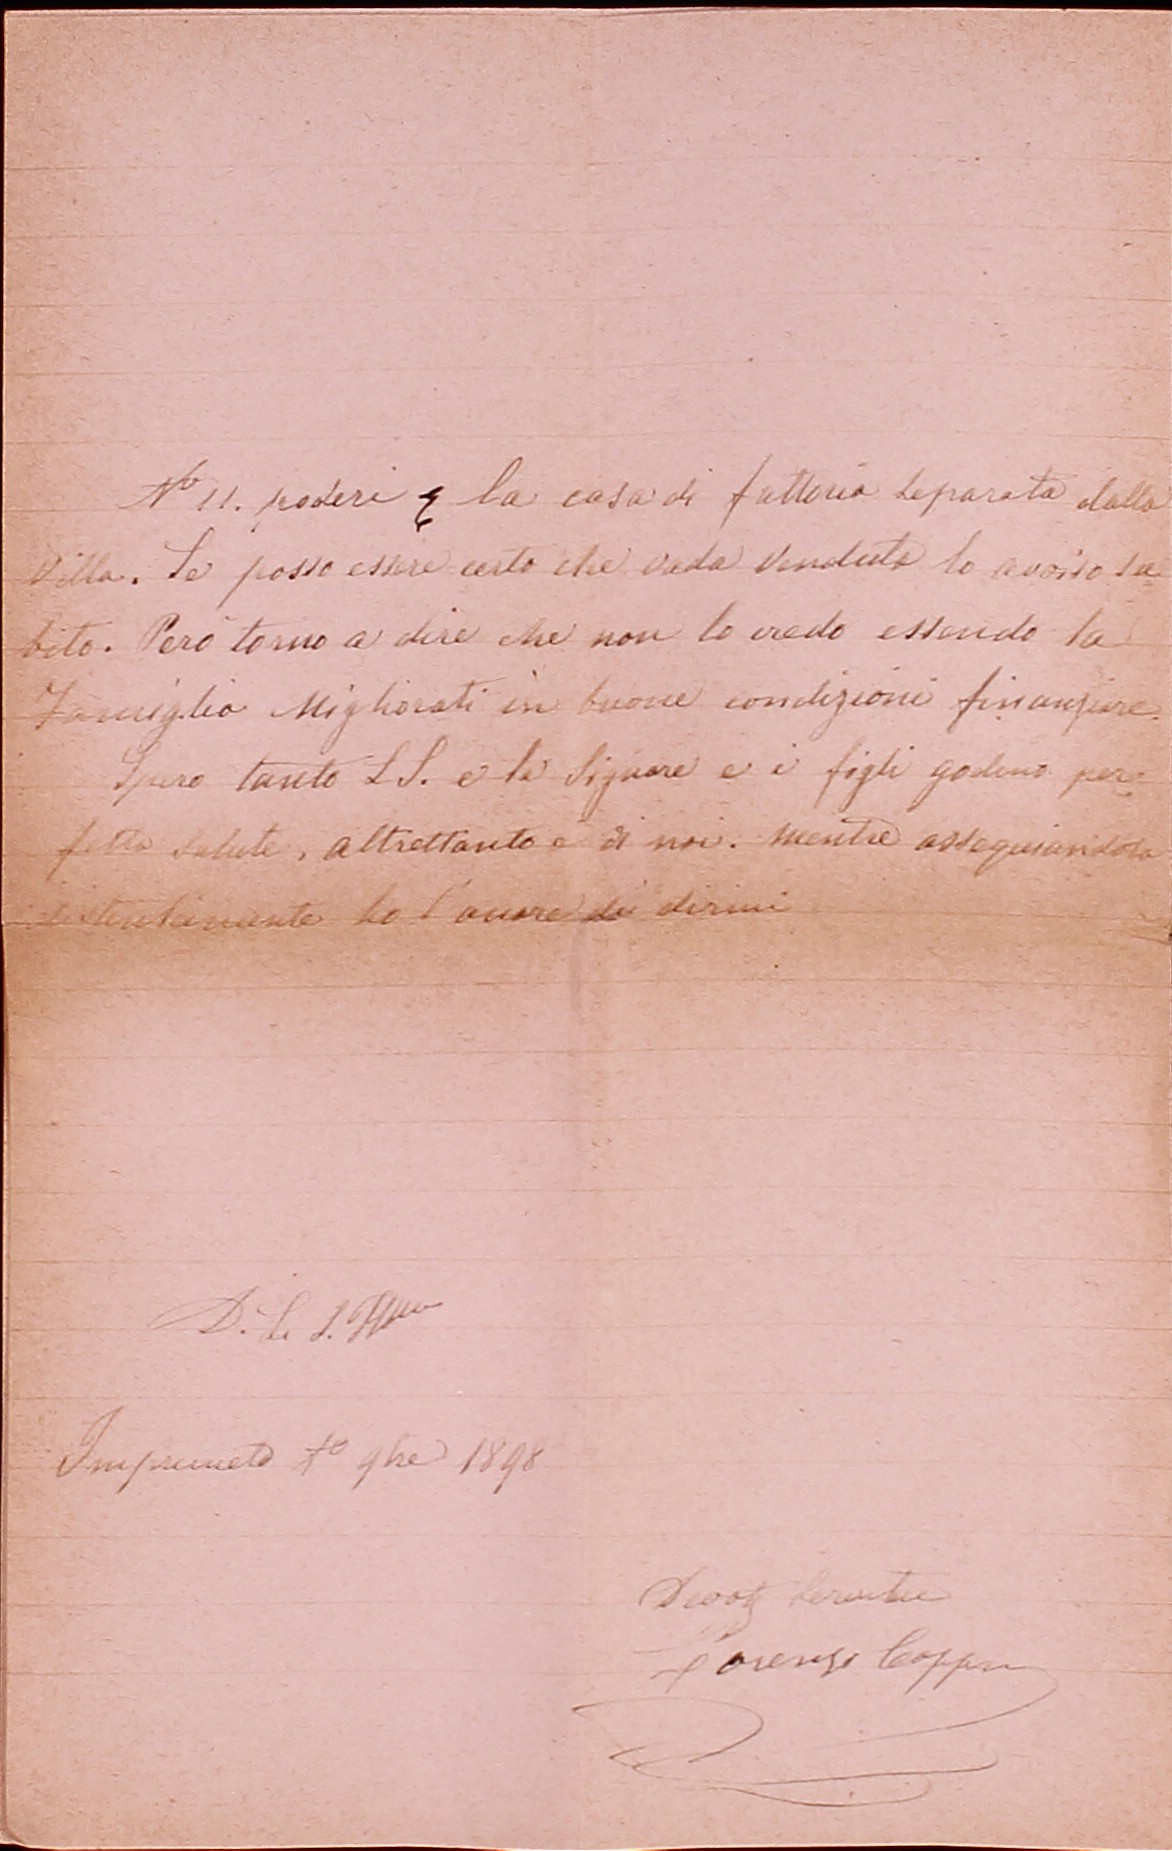 No 11. poderi e la casa di fattoria separata dalla
Villa. Se posso essere certo che vada venduta lo avviso su
bito. Però torno a dire che non lo credo essendo la
Famiglia Migliorati in buone condizioni finanziare.
Spero tanto L S. e la Signore e i figli godino per
fetta salute, altrettanto è di noi. Mentre ossequiandola
distintamente ho l'onore di dirmi
D. L. S. Illma
Impruneta 9bre 1898
Devot Servitre
Lorenzo